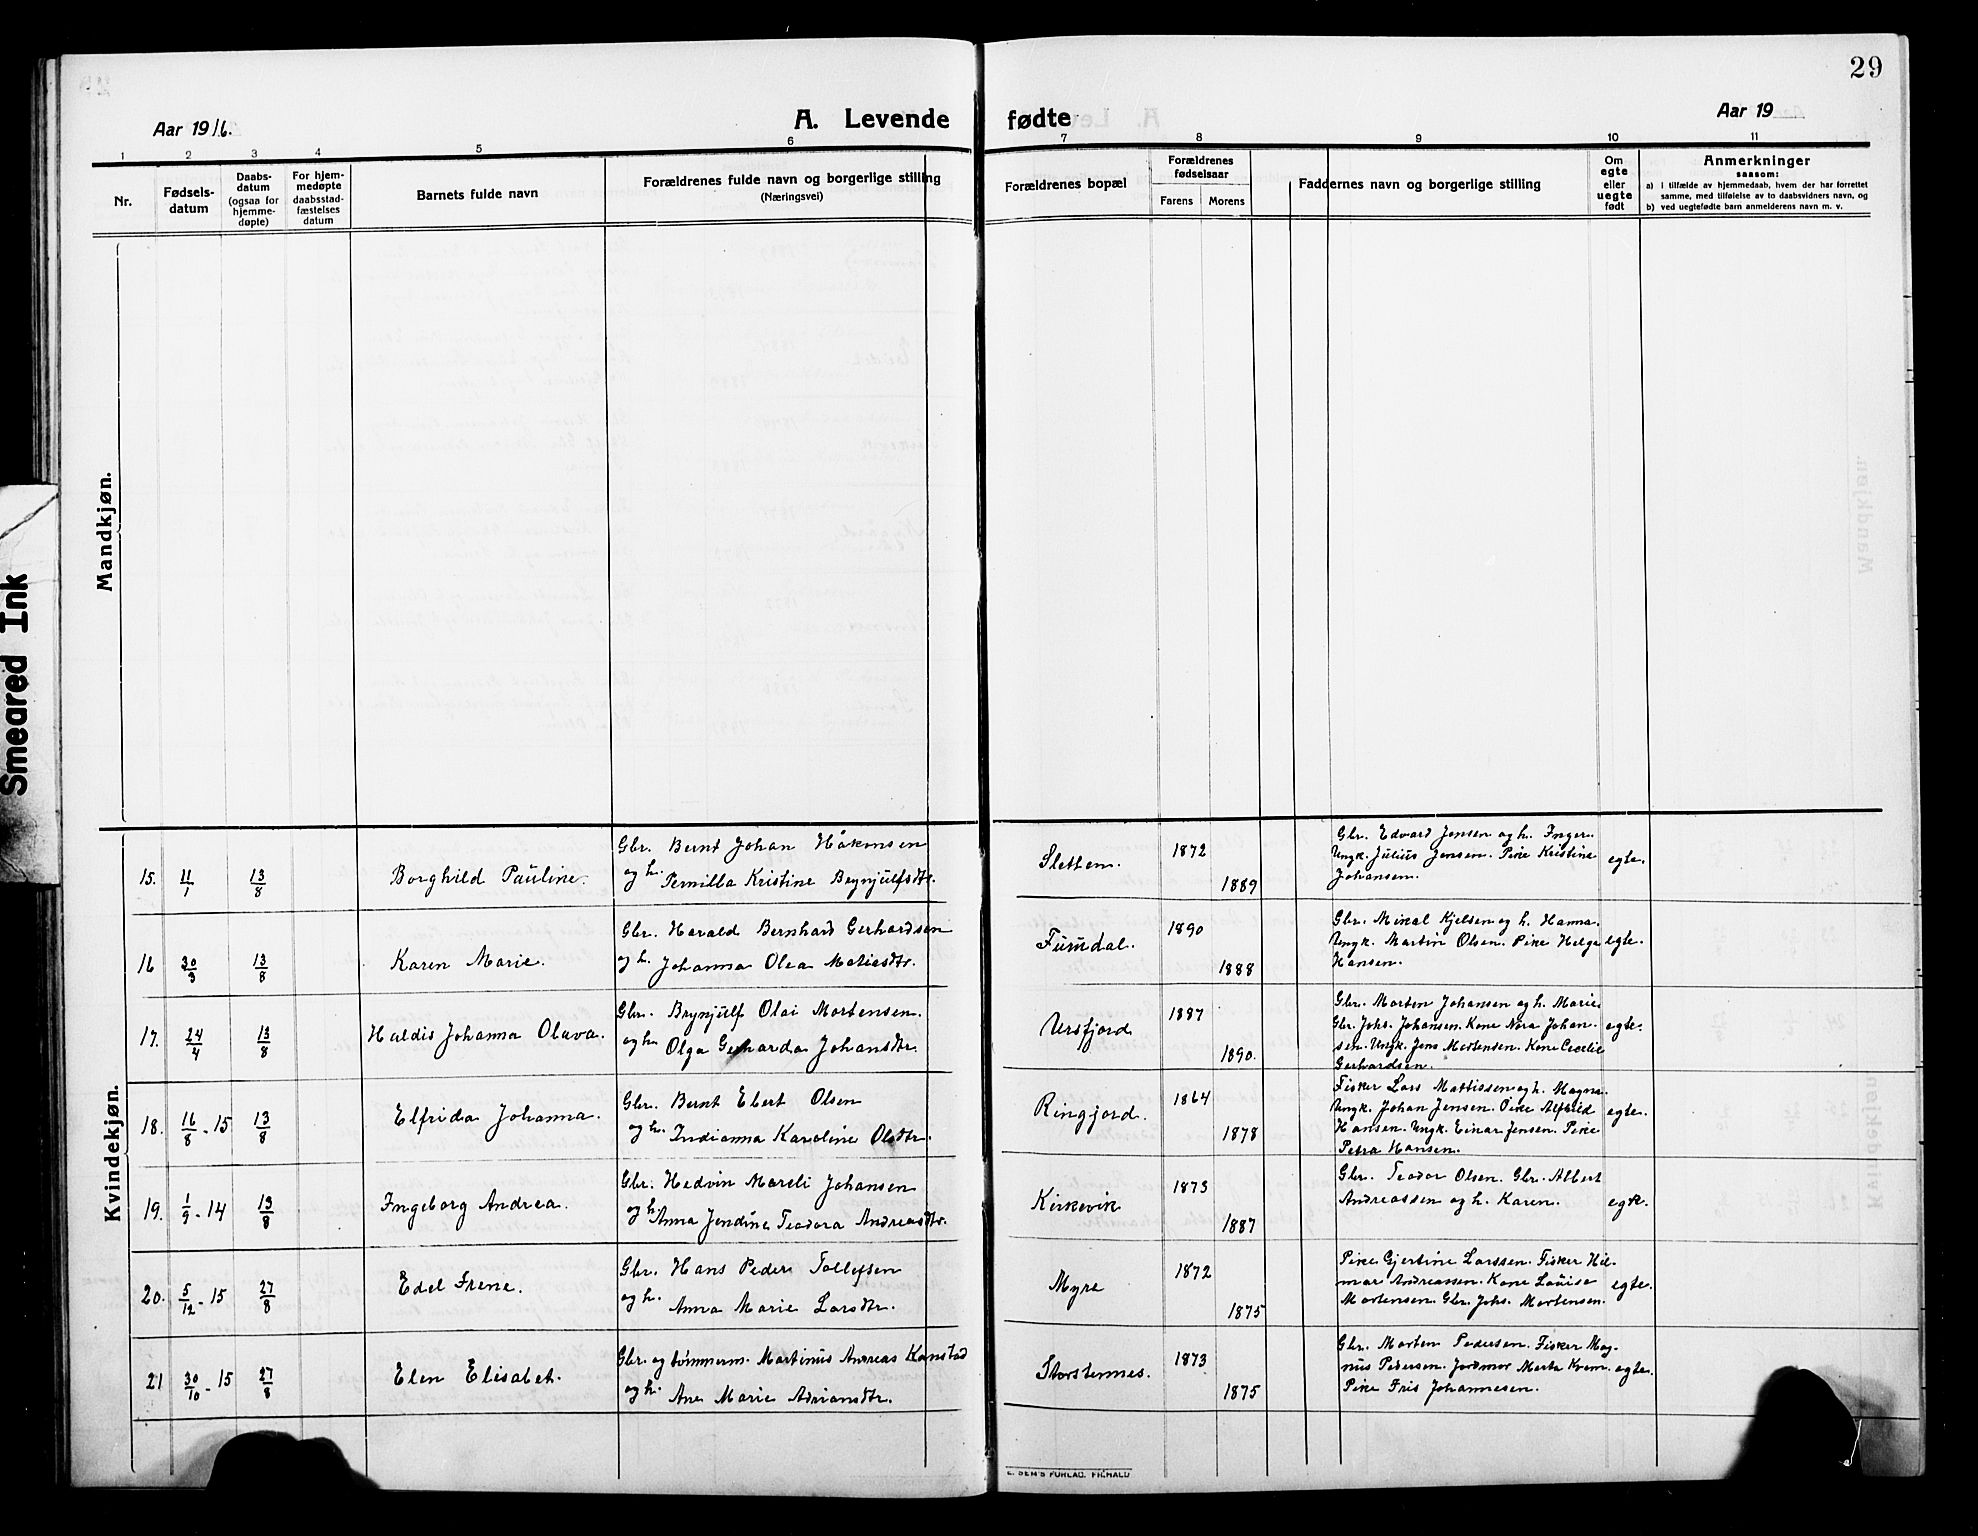 29
Aar 1916.
A. Levende fødte
Aar 19
1 2 3 4 5 6 7 8 9 10 11
Nr.
Fødsels-
datum
Daabs-
datum
(ogsaa for
hjemme-
døpte)
For hjem-
medøpte
daabsstad-
fæstelses
datum
Barnets fulde navn
Forældrenes fulde navn og borgerlige stilling
(Næringsvei)
Forældrenes bopæl
Forældrenes
fødselsaar
Farens Morens
Faddernes navn og borgerlige stilling
Om
egte
eller
uegte
født
Anmerkninger
saasom:
a) i tilfælde av hjemmedaab, hvem der har forrettet
samme, med tilføielse av to daabsvidners navn, og
b) ved uegtefødte barn anmelderens navn m. v.
Mandkjøn.
Smeared Ink
Kvindekjøn.
15. 11/1 13/8 Borghild Pauline.
Gbr. Bernt Johan Håkonsen
og h. Pernilla Kristine Brynjulfsdtr.
Sletten. 1872 1889
Gbr. Edvard Jensen og h. Inger.
Ungk. Julius Jensen. Pike Kristine
Johansen.
egte.
16 30/3 13/8 Karen Marie.
Gbr. Harald Bernhard Gerhardsen
og h. Johanna Olea Matiasdtr.
1890 1888
Gbr. Mikal Kjelsen og h. Hanna.
Ungk. Martin Olsen. Pike Helga
Hansen.
egte.
17. 24/4 13/8 Haldis Johanna Olava.
Gbr. Brynjulf Olai Mortensen.
og h. Olga Gerharda Johansdtr.
Ursfjord 1887 1890.
Gbr. Morten Johansen og h. Marie
Gbr. Johs. Johansen. Kone Nora Johan-
sen. Ungk. Jens Mortensen. Kone Cecelie
Gerhardsen.
egte.
18. 16/8 - 15 13/8 Elfrida Johanna.
Gbr. Bernt Ebert Olsen
og h. Indianna Karoline Olsdtr.
Ringjord. 1864 1878
Fisker Lars Mattissen og h. Magna
Ungk. Johan Jensen. Pike Alfhild
Hansen. Ungk. Einar Jensen. Pike
Petra Hansen.
egte.
19. 1/9 - 14 13/8 Ingeborg Andrea.
Gbr. Hedvin Mareli Johansen
og h. Anna Jendine Teodora Andreasdtr.
Kirkevik 1873 1887
Gbr. Teodor Olsen. Gbr. Albert
Andreassen og h. Karen.
egte.
20. 5/12 - 15 27/8 Edel Irene.
Gbr. Hans Peder Tollefsen
og h. Anna Marie Larsdtr.
Myre 1872 1875
Pike Gjertine Larssen. Fisker Hil-
mar Andreassen. Kone Louise
Mortensen. Gbr. Johs. Mortensen.
egte.
21 30/10 - 15 27/8 Elen Elisabet.
Gbr. og tømmerm. Martinus Andreas Kanstad
og h. Ane Marie Adriansdtr.
Storstennes. 1873 1875
Gbr. Morten Pedersen. Fisker Mag-
nus Pedersen. Jordmor Marta Kvam.
Pike Fris Johannesen.
egte.
E. SEM'S FORLAG, FR.HALD